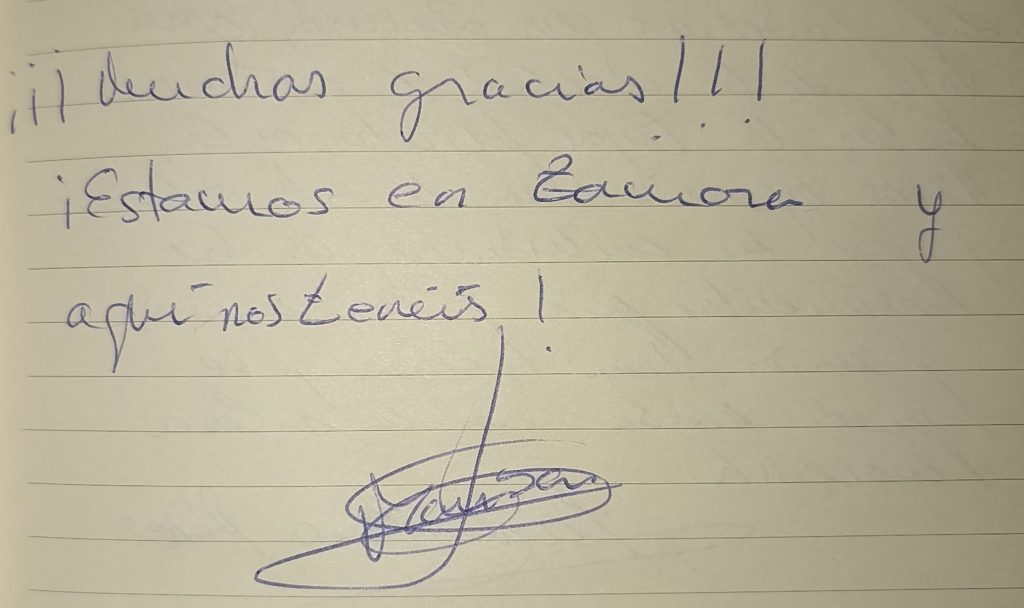 ¡¡¡Muchas gracias!!!
¡Estamos en Zamora y
aquí nos tenéis!